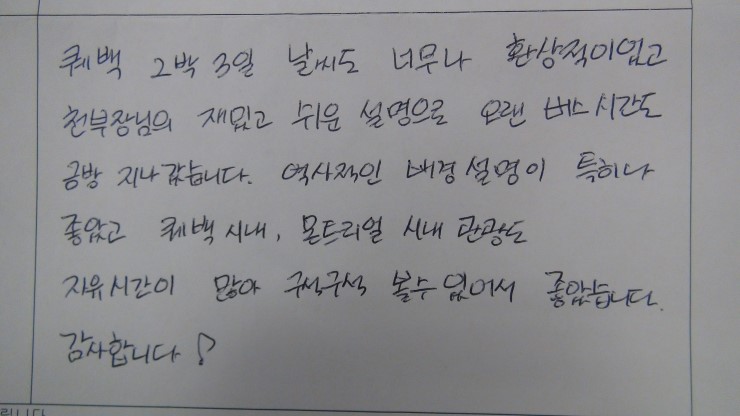 퀘백 2박 3일 날씨도 너무나 환상적이었고
천부장님의 재밌고 쉬운 설명으로 오랜 버스 시간도
금방 지나갔습니다. 역사적인 배경 설명이 특히나
좋았고 퀘백 시내, 몬트리얼 시내 관광도
자유시간이 많아 구석구석 볼수 있어서 좋았습니다.
감사합니다♪
립니다